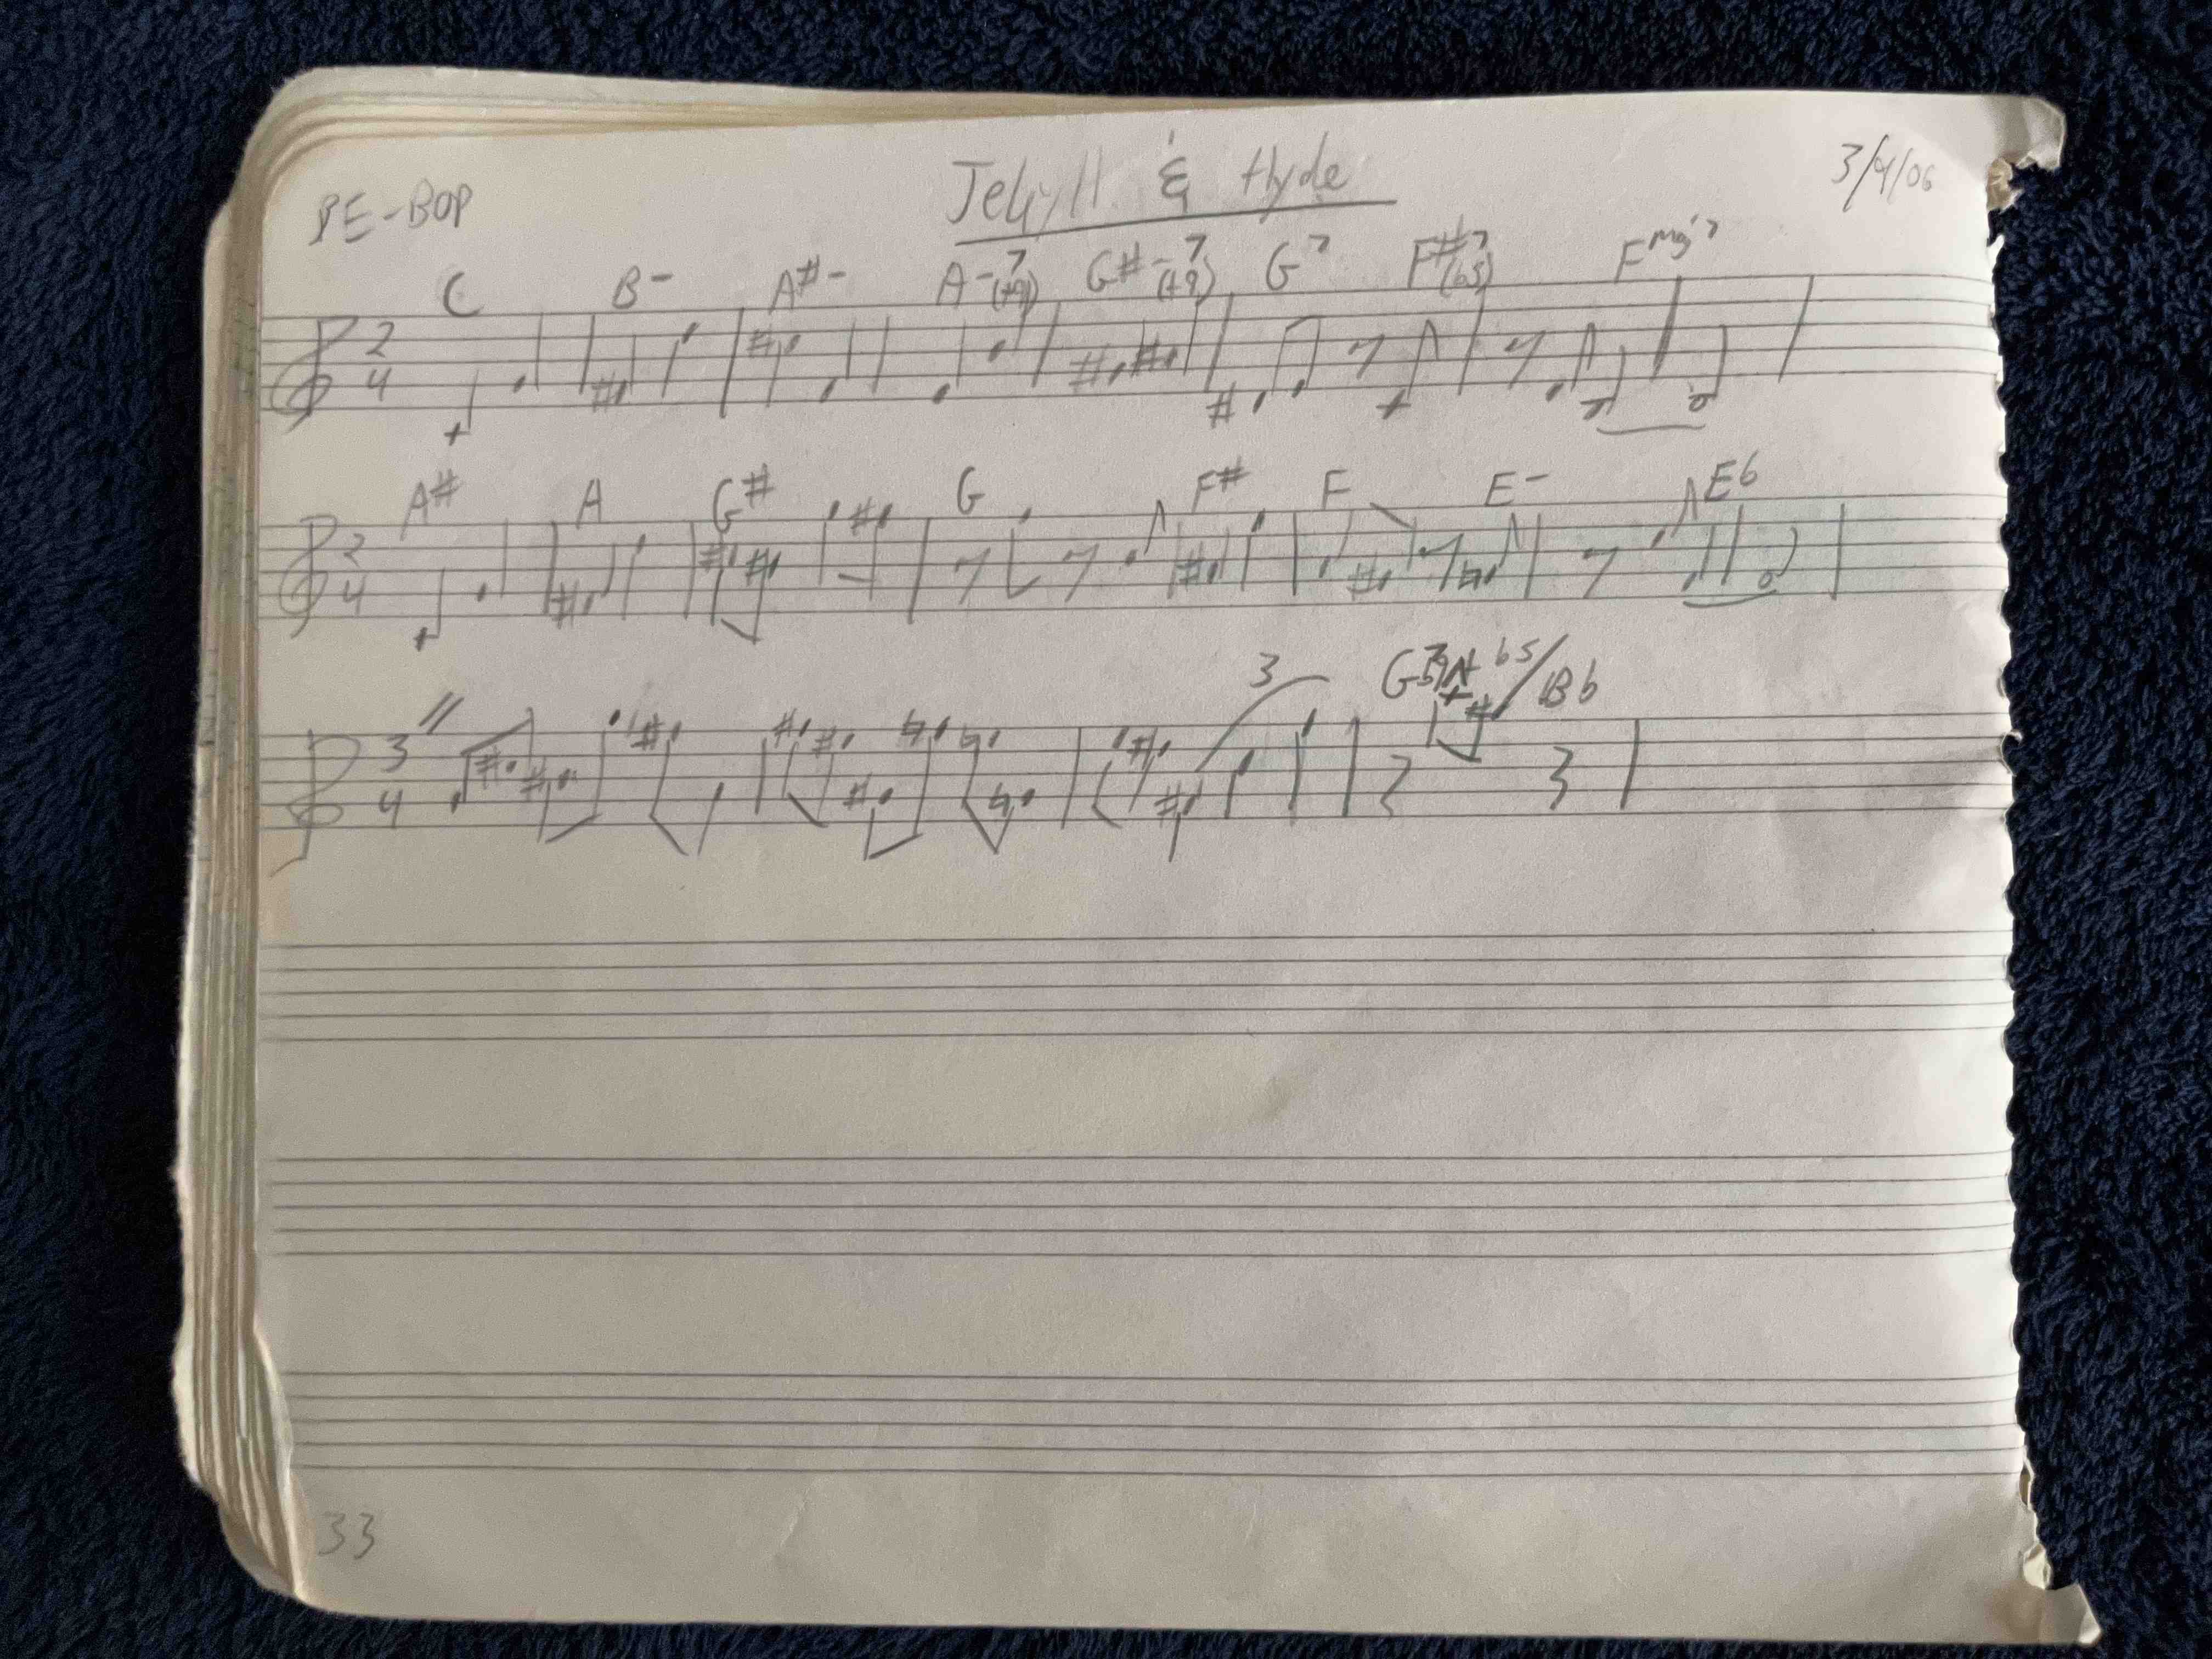 Jekyll & Hyde
3/4/06
BE-BOP
C B- A#- A-7(+9) G#-7(+9) G7 F#7(b5) Fmaj7
2
4
A# A G# G F# F E- Eb
2
4
3
G b5/Bb
3
4
33